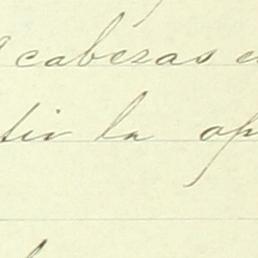 cabezas e
tir la op